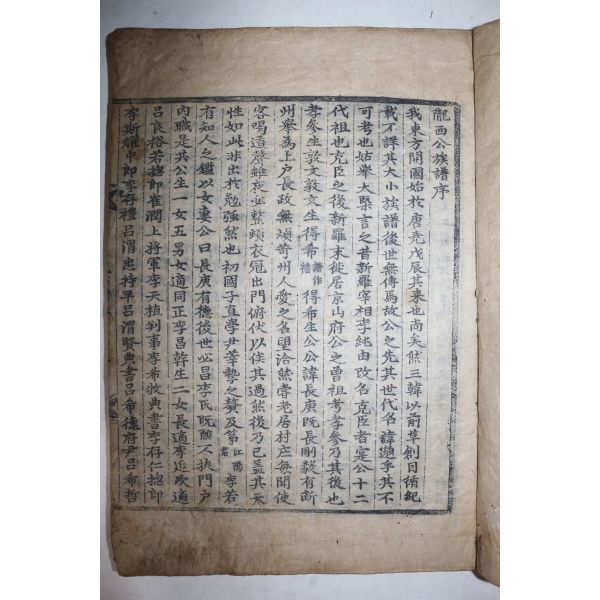 隴西公族譜序
我東方開國始於唐堯戊辰其来也尚矣然三韓以前草創因循紀
載不詳其大小族譜後世無傳焉故公之先其世代名諱邈乎其不
可考也姑擧大槩言之昔新羅宰相李純由改名克臣者寔公十二
代祖也克臣之後新羅末徙居京山府公之曾祖考孝参乃其後也
孝参生敦文敦文生得希譜作禧得希生公公諱長庚既長剛毅有断
州舉為上戶長政無頗苛州人愛之名望洽然甞老居村庄每聞使
客喝道聲雖夜必整頓衣冠出門俯伏以俟其過然後乃已盖其天
性如此非出於勉强然也初國子直學尹華摯之贅及第江陽君李若
有知人之鑑以女妻公曰長庚有德後世必昌李氏既醮入扶門戶
內職是共公生一女五男女適同正李昌幹生二女長適李近次適
呂良格若捴郎崔潤上將軍李天植判事李希牧典書李存仁捴郎
李斯耀中郎李存禮呂渭忠持平呂渭賢典書呂希德府尹呂希哲